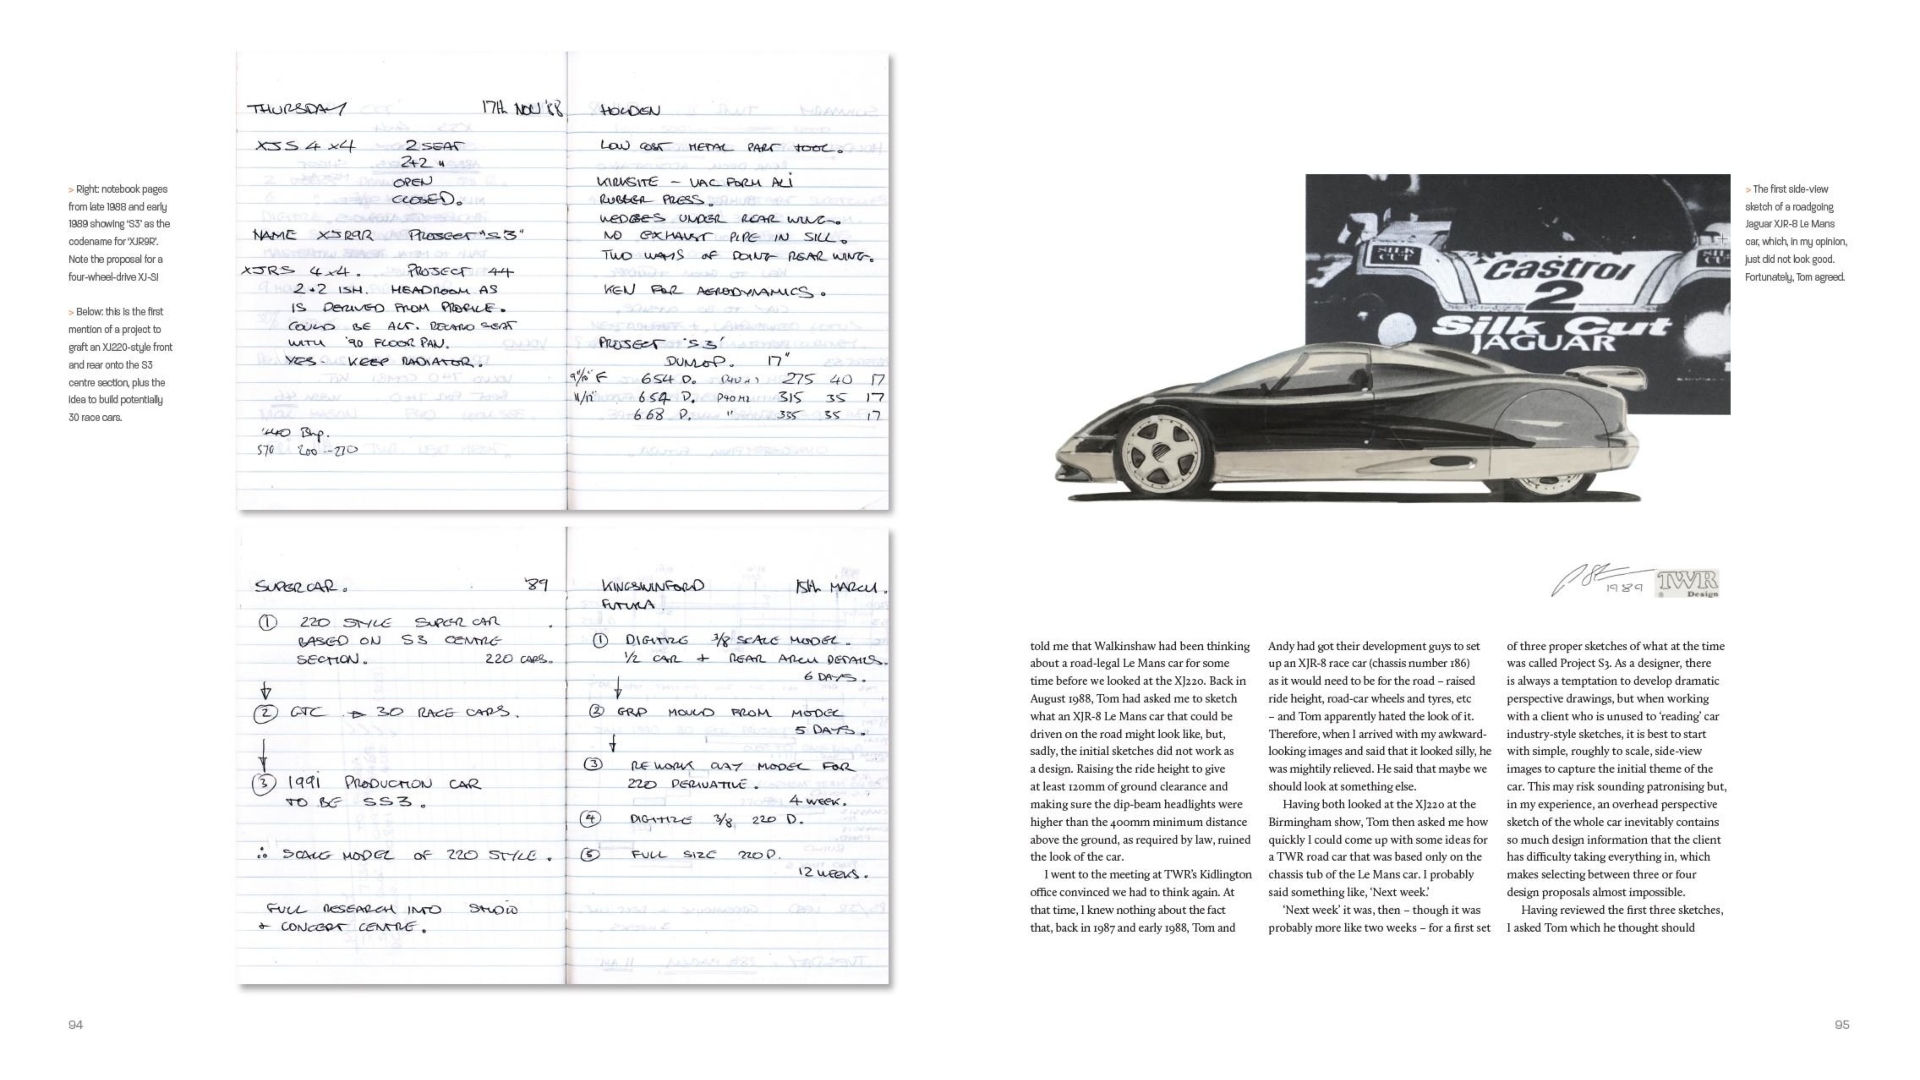 > Right: notebook pages
from late 1988 and early
1989 showing 'S3' as the
codename for 'XJR9R'.
Note the proposal for a
four-wheel-drive XJ-S!
> Below: this is the first
mention of a project to
graft an XJ220-style front
and rear onto the S3
centre section, plus the
idea to build potentially
30 race cars.
THURSDAY 17th NOV '88
XJS 4x4 2 SEAT
2+2 "
OPEN
CLOSED.
NAME XJR9R PROJECT "S3"
XJRS 4x4. PROJECT 44
2+2 ISH. HEADROOM AS
IS DERIVED FROM PROFILE.
COULD BE ALT. RECARO SEAT
WITH '90 FLOOR PAN.
YES KEEP RADIATOR.
440 Bhp.
570 200 - 270
HOLDEN
LOW COST METAL PART TOOL.
KIRKSITE - VAC FORM ALI
RUBBER PRESS.
WEDGES UNDER REAR WING.
NO EXHAUST PIPE IN SILL.
TWO WAYS OF DOING REAR WING.
KEN FOR AERODYNAMICS.
PROJECT 'S3'
DUNLOP. 17"
9"/10" F 654 D. P40 275 40 17
11/12" 654 D. P90 315 35 17
668 D. " 335 35 17
SUPERCAR. '89
① 220 STYLE SUPERCAR
BASED ON S3 CENTRE
SECTION. 220 CARS.
② GTC → 30 RACE CARS.
③ 1991 PRODUCTION CAR
TO BE SS3.
∴ SCALE MODEL OF 220 STYLE.
FULL RESEARCH INTO STUDIO
+ CONCEPT CENTRE.
KINGSWINFORD 15th MARCH.
FUTURA.
① DIGITIZE 3/8 SCALE MODEL.
1/2 CAR + REAR ARCH DETAILS.
6 DAYS.
② GRP MOULD FROM MODEL
5 DAYS.
③ REWORK CLAY MODEL FOR
220 DERIVATIVE.
4 WEEK.
④ DIGITIZE 3/8 220 D.
⑤ FULL SIZE 220D.
12 WEEKS.
94
SILK CUT
Castrol
2
Silk Cut
JAGUAR
> The first side-view
sketch of a roadgoing
Jaguar XJR-8 Le Mans
car, which, in my opinion,
just did not look good.
Fortunately, Tom agreed.
1989
TWR
Design
told me that Walkinshaw had been thinking
about a road-legal Le Mans car for some
time before we looked at the XJ220. Back in
August 1988, Tom had asked me to sketch
what an XJR-8 Le Mans car that could be
driven on the road might look like, but,
sadly, the initial sketches did not work as
a design. Raising the ride height to give
at least 120mm of ground clearance and
making sure the dip-beam headlights were
higher than the 400mm minimum distance
above the ground, as required by law, ruined
the look of the car.
I went to the meeting at TWR's Kidlington
office convinced we had to think again. At
that time, I knew nothing about the fact
that, back in 1987 and early 1988, Tom and
Andy had got their development guys to set
up an XJR-8 race car (chassis number 186)
as it would need to be for the road – raised
ride height, road-car wheels and tyres, etc
– and Tom apparently hated the look of it.
Therefore, when I arrived with my awkward-
looking images and said that it looked silly, he
was mightily relieved. He said that maybe we
should look at something else.
Having both looked at the XJ220 at the
Birmingham show, Tom then asked me how
quickly I could come up with some ideas for
a TWR road car that was based only on the
chassis tub of the Le Mans car. I probably
said something like, 'Next week.'
'Next week' it was, then – though it was
probably more like two weeks – for a first set
of three proper sketches of what at the time
was called Project S3. As a designer, there
is always a temptation to develop dramatic
perspective drawings, but when working
with a client who is unused to 'reading' car
industry-style sketches, it is best to start
with simple, roughly to scale, side-view
images to capture the initial theme of the
car. This may risk sounding patronising but,
in my experience, an overhead perspective
sketch of the whole car inevitably contains
so much design information that the client
has difficulty taking everything in, which
makes selecting between three or four
design proposals almost impossible.
Having reviewed the first three sketches,
I asked Tom which he thought should
95